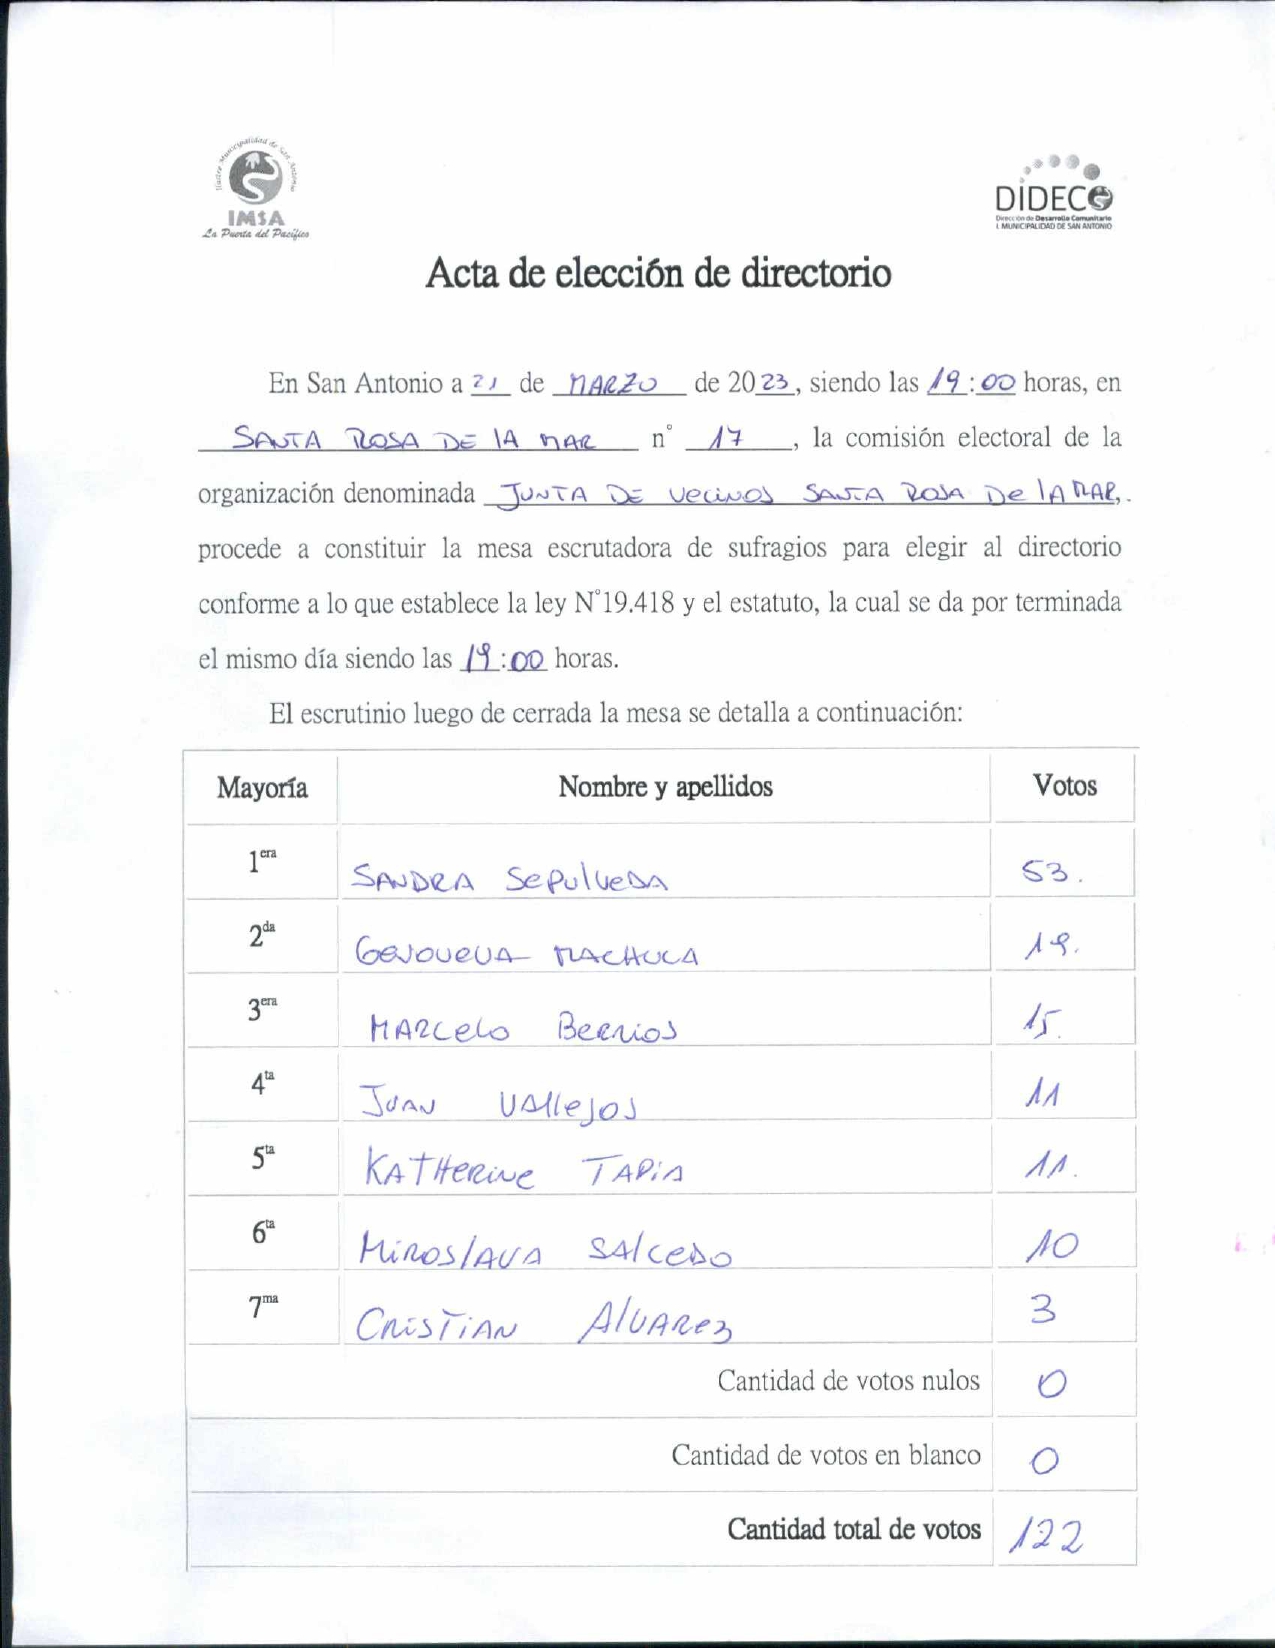 Ilustre Municipalidad de San Antonio
IMSA
La Puerta del Pacífico
DIDECO
Dirección de Desarrollo Comunitario
I. MUNICIPALIDAD DE SAN ANTONIO
Acta de elección de directorio
En San Antonio a 21 de MARZO de 2023, siendo las 19:00 horas, en
SANTA ROSA DE LA MAR n° 17, la comisión electoral de la
organización denominada JUNTA DE VECINOS SANTA ROSA DE LA MAR,.
procede a constituir la mesa escrutadora de sufragios para elegir al directorio
conforme a lo que establece la ley N°19.418 y el estatuto, la cual se da por terminada
el mismo día siendo las 19:00 horas.
El escrutinio luego de cerrada la mesa se detalla a continuación:
Mayoría Nombre y apellidos Votos
1era SANDRA SEPULVEDA 53.
2da GENOVEVA MACHUCA 19.
3era MARCELO BERRIOS 15.
4ta JUAN VALLEJOS 11
5ta KATHERINE TAPIA 11.
6ta MIROSLAVA SALCEDO 10
7ma CRISTIAN ALVAREZ 3
Cantidad de votos nulos 0
Cantidad de votos en blanco 0
Cantidad total de votos 122